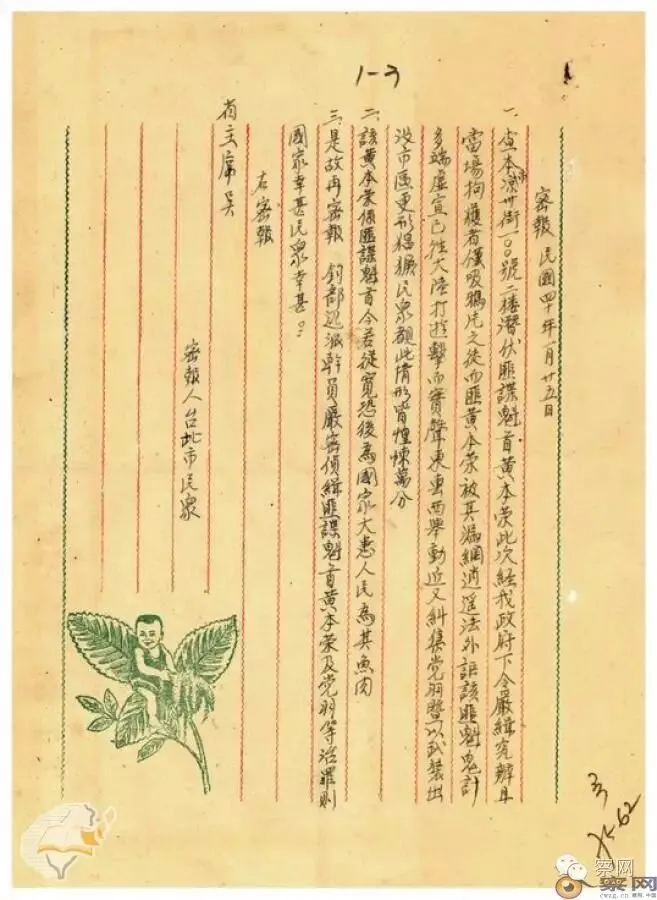 1-3
密報 民國四十年一月廿五日
一、查本市凉州街一〇〇號二楼潛伏匪諜魁首黃本荣此次經我政府下令嚴緝究辦且
當場拘獲者僅吸鴉片之徒而匪黃本荣被其漏網逍遥法外詎該匪魁鬼計
多端虛宣已往大陸打游擊而實聲東击西舉動近又糾集党羽暨以武装出
沒市區更形猖獗民衆覩此情形皆惶悚萬分
二、該黃本荣係匪諜魁首今若從寬恐後為國家大患人民為其魚肉
三、是故再密報 鈞部迅派幹員嚴密偵緝匪諜魁首黃本荣及党羽等治罪則
國家幸甚民衆幸甚。
右密報
省主席吳
密報人台北市民衆
62
察网
察网
cwzg.cn